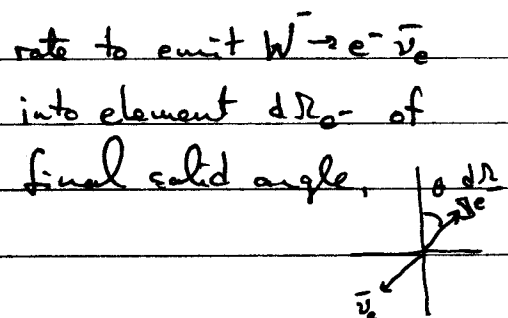 rate to emit W⁻ → e⁻ ν̄ₑ
into element dΩₑ- of
final solid angle.
θ dΩ
e
ν̄ₑ